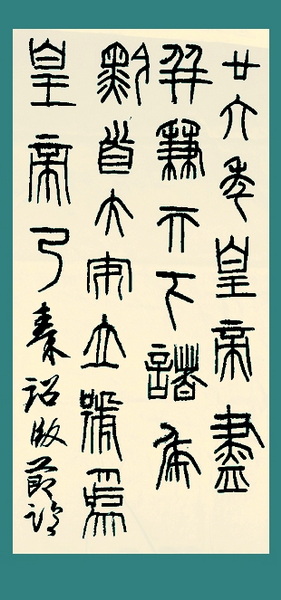 廿六年皇帝盡
并兼天下諸侯
黔首大安立號為
皇帝乃
秦詔版節臨